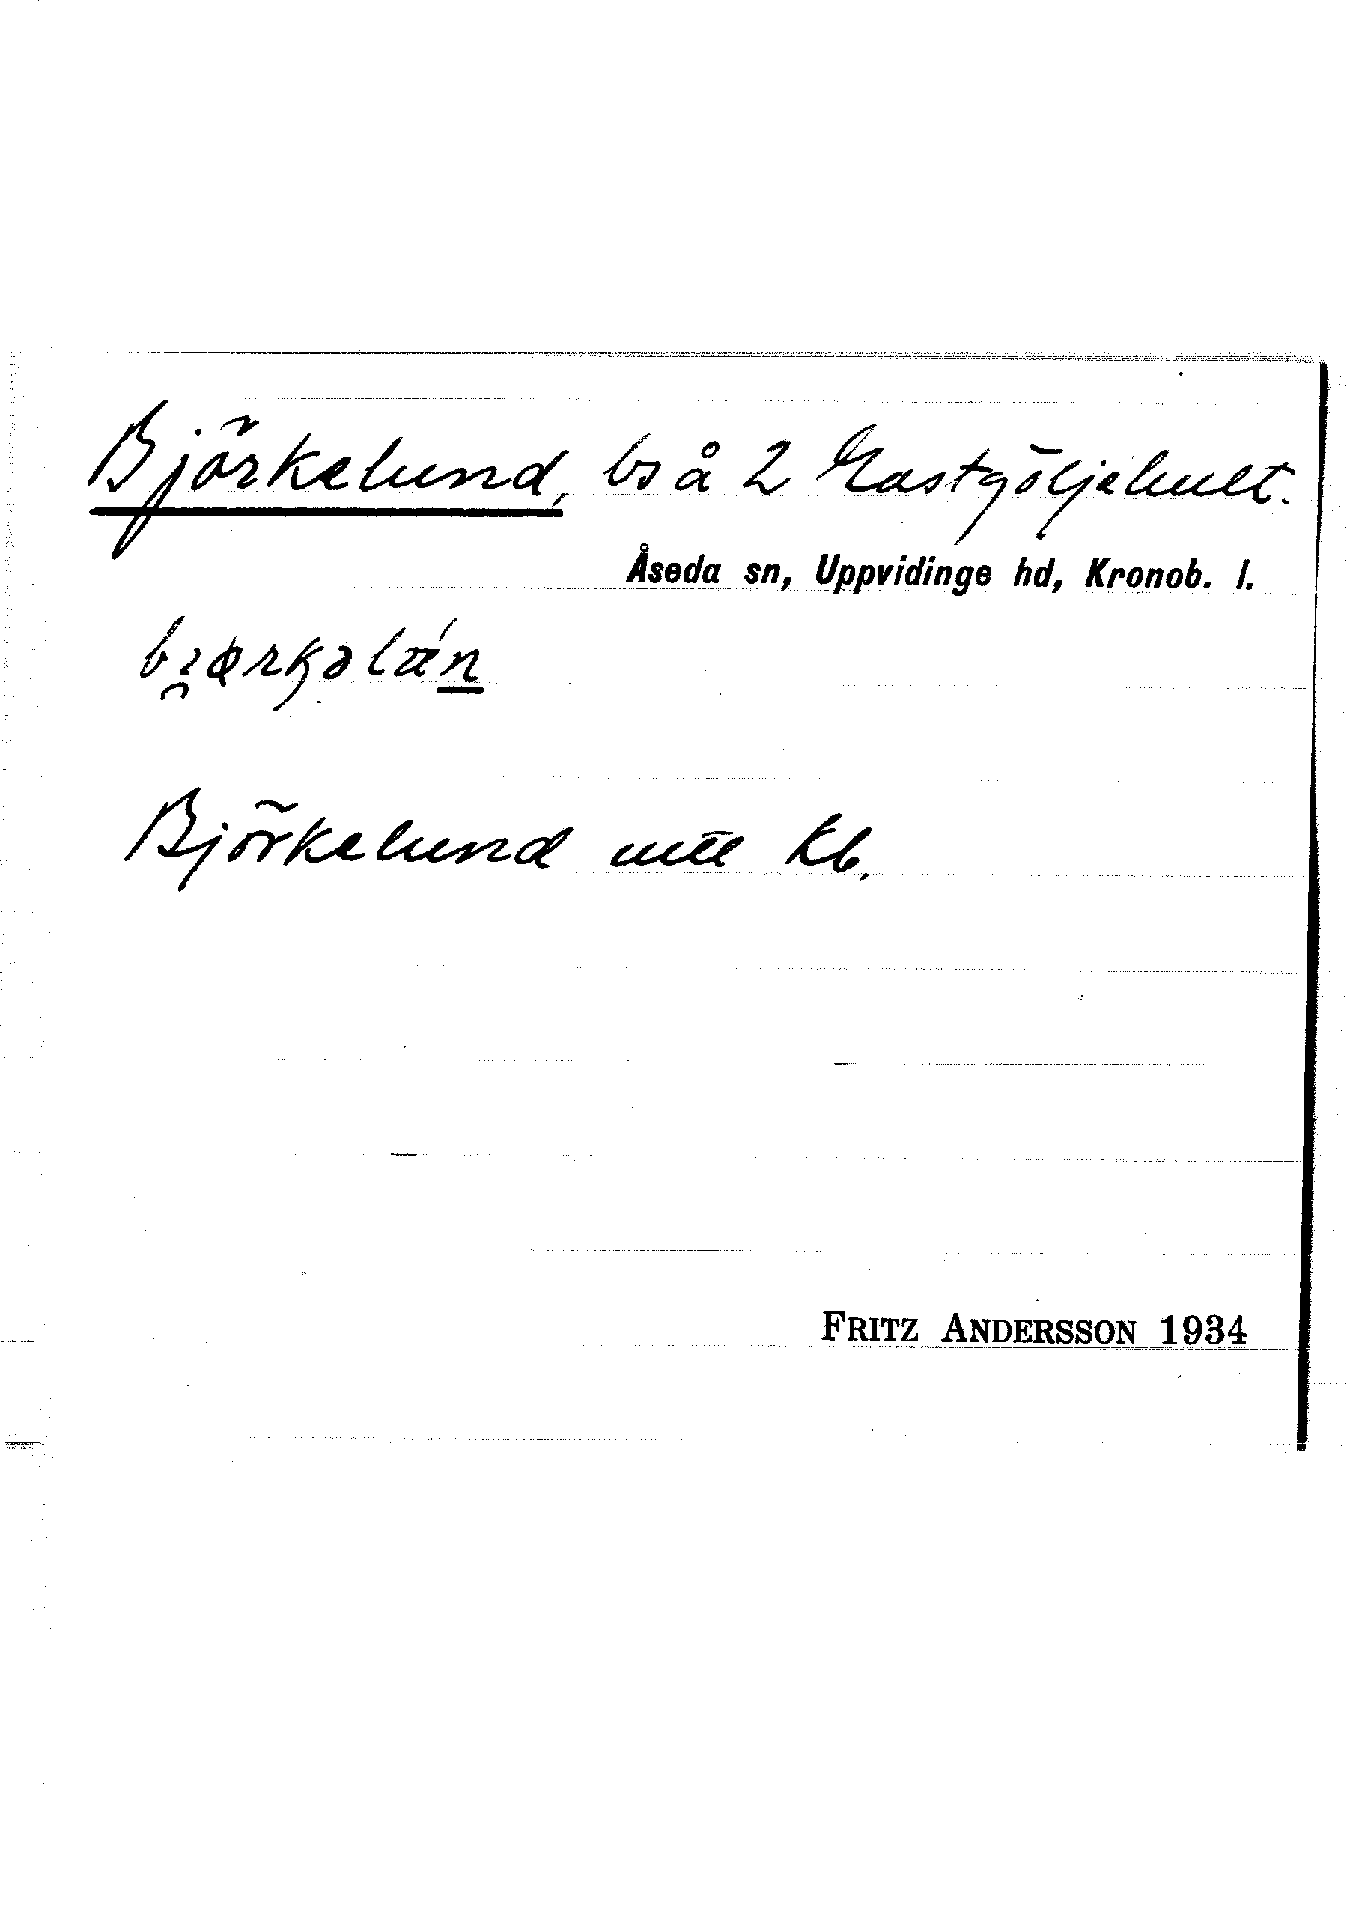 Björkelund, bs å 2 Gastgöljehult.
Åseda sn, Uppvidinge hd, Kronob. l.
Björkelund mtl Kb.
FRITZ ANDERSSON 1934